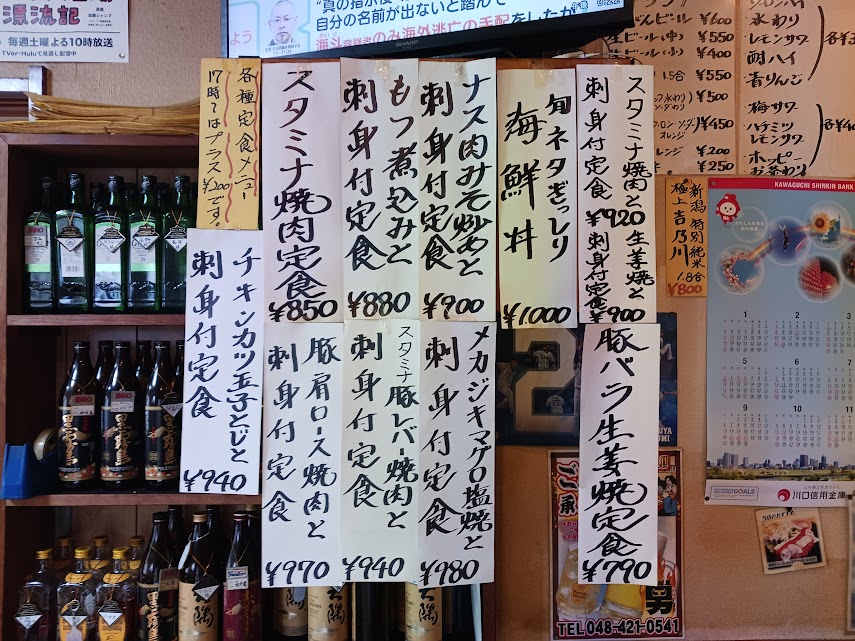 漂流記
毎週土曜よる10時放送
TVer・Huluで見逃し配信中
よう
自分の名前が出ないと踏んで
海斗容疑者のみ海外逃亡の手配をしたか
SHARP
各種定食メニュー
17時てはプラス
¥200です。
スタミナ焼肉定食
¥850
もつ煮込みと
刺身付定食
¥880
ナス肉みそ炒めと
刺身付定食
¥900
旬ネタぎっしり
海鮮丼
¥1000
スタミナ焼肉と
刺身付定食
¥920
生姜焼と
刺身付定食
¥900
チキンカツ玉子とじと
刺身付定食
¥940
豚肩ロース焼肉と
刺身付定食
¥970
スタミナ豚レバー焼肉と
刺身付定食
¥940
メカジキマグロ塩焼と
刺身付定食
¥980
豚バラ生姜焼定食
¥790
¥600
¥550
¥400
¥550
¥500
¥450
¥200
¥250
氷わり
レモンサワー
酎ハイ
青りんご
梅サワー
ハチミツ
レモンサワー
ホッピー
お茶わり
新潟 特別純米
極上吉乃川
1.8合
¥800
KAWAGUCHI SHINKIN BANK
1
2
5
6
9
10
SUSTAINABLE DEVELOPMENT GOALS
川口信用金庫
TEL 048-421-0541